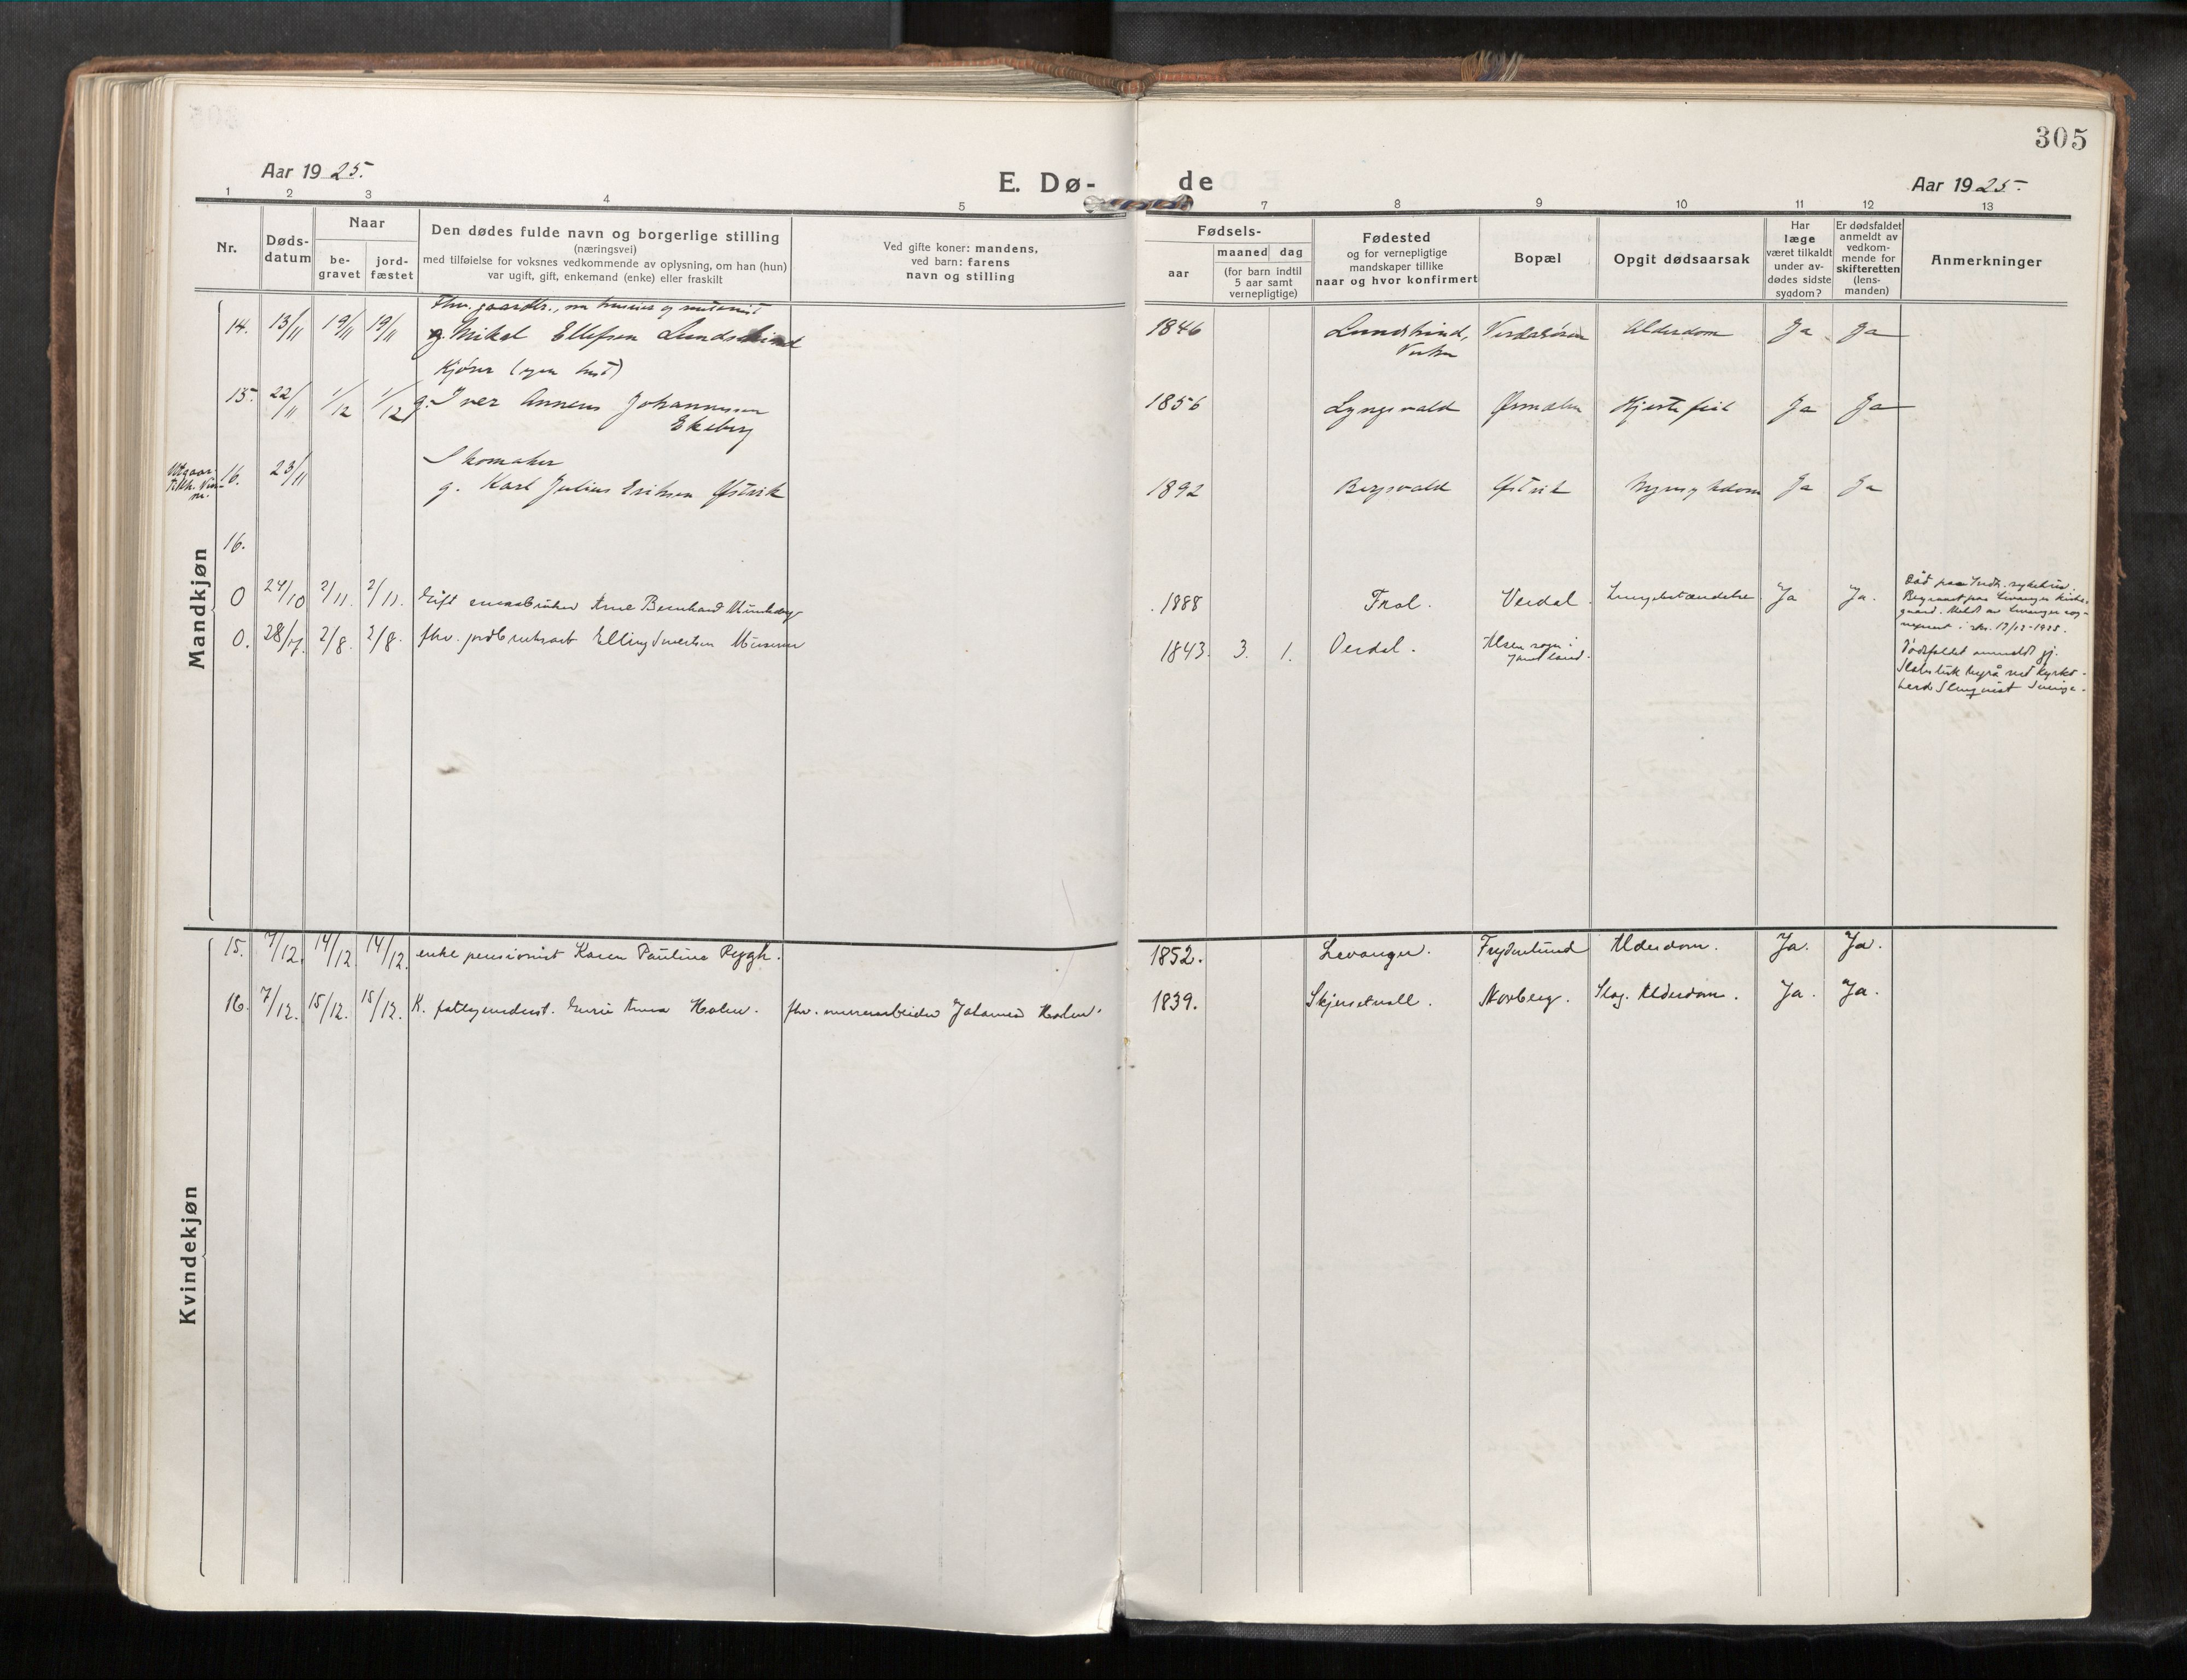 305
Aar 1925.
E. Dø-
de
Aar 1925.
1 2 3 4 5 7 8 9 10 11 12 13
Nr.
Døds-
datum
Naar
be-
gravet
jord-
fæstet
Den dødes fulde navn og borgerlige stilling
(næringsvei)
med tilføielse for voksnes vedkommende av oplysning, om han (hun)
var ugift, gift, enkemand (enke) eller fraskilt
Ved gifte koner: mandens,
ved barn: farens
navn og stilling
Fødsels-
aar
maaned dag
(for barn indtil
5 aar samt
vernepligtige)
Fødested
og for vernepligtige
mandskaper tillike
naar og hvor konfirmert
Bopæl
Opgit dødsaarsak
Har
læge
været tilkaldt
under av-
dødes sidste
sygdom?
Er dødsfaldet
anmeldt av
vedkom-
mende for
skifteretten
(lens-
manden)
Anmerkninger
Mandkjøn
Fhv. gaardbr.,
14. 13/11 19/11 19/11 g. Mikal Ellefsen Lundskind 1846 Lundskind, Verdalsøren Alderdom Ja Ja
Kjører
15. 22/11 1/12 1/12 g. Iver Anneus Johannesen 1856 Lyngsvald Ørmelen Hjertefeil Ja Ja
Ekeberg
Skomaker
Utgaar
16. 23/11 g. Karl Julius Eriksen Østvik 1892 Bergsvald Østvik Ja Ja
16.
0 24/10 2/11. 2/11. Gift Arne Bernhard 1888 Frol. Verdal. Lungebetændelse Ja Ja.
Død paa Indh. sykehus.
Begravet paa Levanger kirke-
gaard. Meldt av Levanger sog-
1925.
0. 28/7. 2/8. 2/8. fhv. Elling Sivertsen 1843. 3. 1. Verdal. Alsen sogn i
Jämtland.
Dødsfaldet anmeldt gj.
Kvindekjøn
15. 7/12. 14/12 14/12. enke pensionist Karen Pauline Rygh. 1852. Levanger. Frydenlund Alderdom. Ja. Ja.
16. 7/12. 15/12. 15/12. K. fattigunderst. Anna Holm. fhv. Holm. 1839. Norberg. Slag. Alderdom. Ja. Ja.